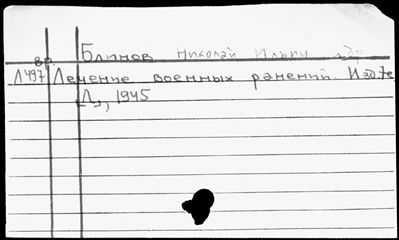 Блинов Николай Ильич
вр.
Л497 Лечение военных ранений. Изд. 7е
Л., 1945